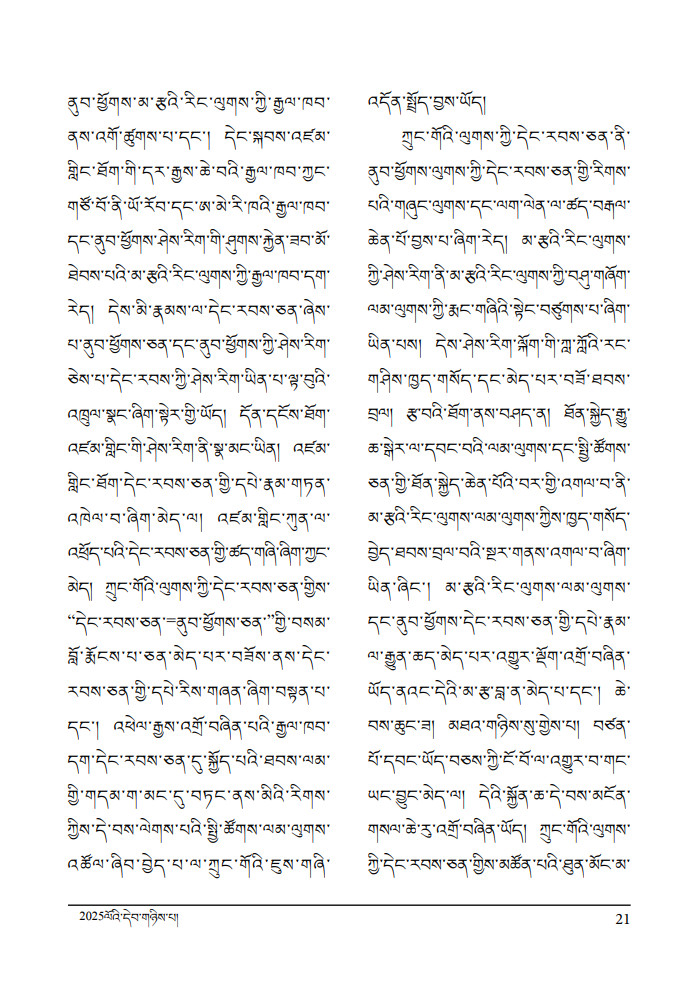 ནུབ་ཕྱོགས་མ་རྩའི་རིང་ལུགས་ཀྱི་རྒྱལ་ཁབ་
ནས་འགོ་ཚུགས་པ་དང་། དེང་སྐབས་འཛམ་
གླིང་ཐོག་གི་དར་རྒྱས་ཆེ་བའི་རྒྱལ་ཁབ་ཀྱང་
གཙོ་བོ་ནི་ཡོ་རོབ་དང་ཨ་མེ་རི་ཁའི་རྒྱལ་ཁབ་
དང་ནུབ་ཕྱོགས་ཤེས་རིག་གི་ཤུགས་རྐྱེན་ཟབ་མོ་
ཐེབས་པའི་མ་རྩའི་རིང་ལུགས་ཀྱི་རྒྱལ་ཁབ་དག་
རེད། དེས་མི་རྣམས་ལ་དེང་རབས་ཅན་ཞེས་
པ་ནུབ་ཕྱོགས་ཅན་དང་ནུབ་ཕྱོགས་ཀྱི་ཤེས་རིག་
ཅེས་པ་དེང་རབས་ཀྱི་ཤེས་རིག་ཡིན་པ་ལྟ་བུའི་
འཁྲུལ་སྣང་ཞིག་སྟེར་གྱི་ཡོད། དོན་དངོས་ཐོག་
འཛམ་གླིང་གི་ཤེས་རིག་ནི་སྣ་མང་ཡིན། འཛམ་
གླིང་ཐོག་དེང་རབས་ཅན་གྱི་དཔེ་རྣམ་གཏན་
འཁེལ་བ་ཞིག་མེད་ལ། འཛམ་གླིང་ཀུན་ལ་
འཕྲོད་པའི་དེང་རབས་ཅན་གྱི་ཚད་གཞི་ཞིག་ཀྱང་
མེད། ཀྲུང་གོའི་ལུགས་ཀྱི་དེང་རབས་ཅན་གྱིས་
“དེང་རབས་ཅན་=ནུབ་ཕྱོགས་ཅན་”གྱི་བསམ་
བློ་རྨོངས་པ་ཅན་མེད་པར་བཟོས་ནས་དེང་
རབས་ཅན་གྱི་དཔེ་རིས་གཞན་ཞིག་བསྟན་པ་
དང་། འཕེལ་རྒྱས་འགྲོ་བཞིན་པའི་རྒྱལ་ཁབ་
དག་དེང་རབས་ཅན་དུ་སྐྱོད་པའི་ཐབས་ལམ་
གྱི་གདམ་ག་མང་དུ་བཏང་ནས་མིའི་རིགས་
ཀྱིས་དེ་བས་ལེགས་པའི་སྤྱི་ཚོགས་ལམ་ལུགས་
འཚོལ་ཞིབ་བྱེད་པ་ལ་ཀྲུང་གོའི་ཇུས་གཞི་
འདོན་སྤྲོད་བྱས་ཡོད།
ཀྲུང་གོའི་ལུགས་ཀྱི་དེང་རབས་ཅན་ནི་
ནུབ་ཕྱོགས་ལུགས་ཀྱི་དེང་རབས་ཅན་གྱི་རིགས་
པའི་གཞུང་ལུགས་དང་ལག་ལེན་ལ་ཚད་བརྒལ་
ཆེན་པོ་བྱས་པ་ཞིག་རེད། མ་རྩའི་རིང་ལུགས་
ཀྱི་ཤེས་རིག་ནི་མ་རྩའི་རིང་ལུགས་ཀྱི་བཤུ་གཞོག་
ལམ་ལུགས་ཀྱི་རྨང་གཞིའི་སྟེང་བཙུགས་པ་ཞིག་
ཡིན་པས། དེས་ཤེས་རིག་ལྐོག་གི་ཀླ་ཀློའི་རང་
གཤིས་ཁྱད་གསོད་དང་མེད་པར་བཟོ་ཐབས་
བྲལ། རྩ་བའི་ཐོག་ནས་བཤད་ན། ཐོན་སྐྱེད་རྒྱུ་
ཆ་སྒེར་ལ་དབང་བའི་ལམ་ལུགས་དང་སྤྱི་ཚོགས་
ཅན་གྱི་ཐོན་སྐྱེད་ཆེན་པོའི་བར་གྱི་འགལ་བ་ནི་
མ་རྩའི་རིང་ལུགས་ལམ་ལུགས་ཀྱིས་ཁྱད་གསོད་
བྱེད་ཐབས་བྲལ་བའི་སྔར་གནས་འགལ་བ་ཞིག་
ཡིན་ཞིང་། མ་རྩའི་རིང་ལུགས་ལམ་ལུགས་
དང་ནུབ་ཕྱོགས་དེང་རབས་ཅན་གྱི་དཔེ་རྣམ་
ལ་རྒྱུན་ཆད་མེད་པར་འགྱུར་ལྡོག་འགྲོ་བཞིན་
ཡོད་ནའང་དེའི་མ་རྩ་བླ་ན་མེད་པ་དང་། ཆེ་
བས་ཆུང་ཟ། མཐའ་གཉིས་སུ་གྱེས་པ། བཙན་
པོ་དབང་ཡོད་བཅས་ཀྱི་ངོ་བོ་ལ་འགྱུར་བ་གང་
ཡང་བྱུང་མེད་ལ། དེའི་སྐྱོན་ཆ་དེ་བས་མངོན་
གསལ་ཆེ་རུ་འགྲོ་བཞིན་ཡོད། ཀྲུང་གོའི་ལུགས་
ཀྱི་དེང་རབས་ཅན་གྱིས་མཚོན་པའི་ཐུན་མོང་མ་
2025ལོའི་དེབ་གཉིས་པ།
21